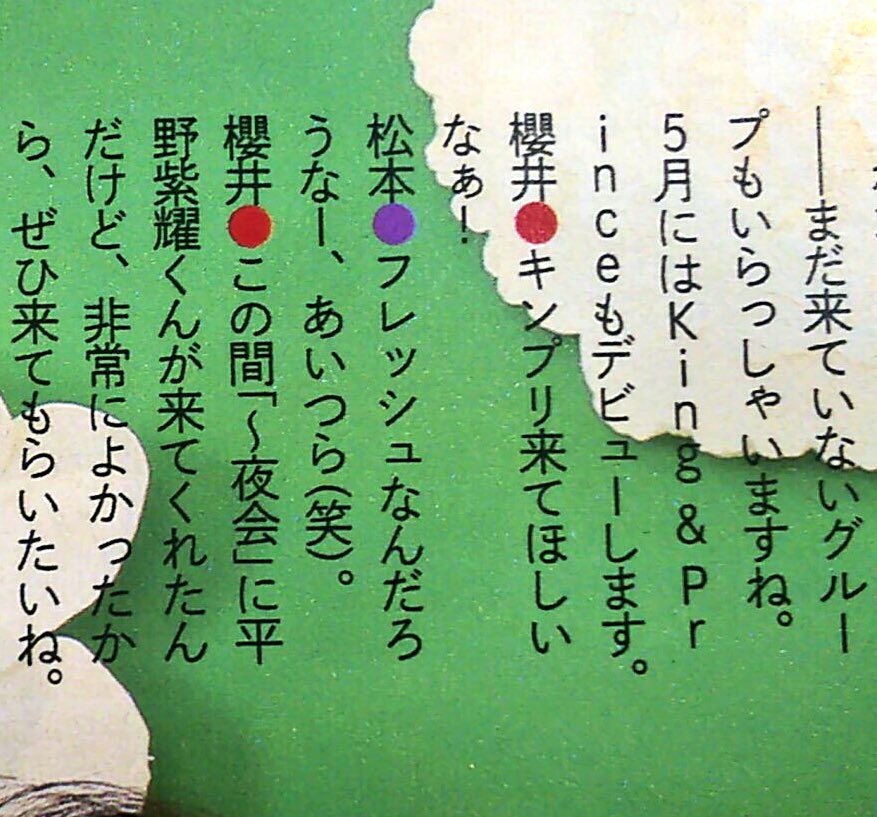 ──まだ来ていないグルー
プもいらっしゃいますね。
5月にはKing&Pr
inceもデビューします。
櫻井●キンプリ来てほしい
なぁ!
松本●フレッシュなんだろ
うなー、あいつら(笑)。
櫻井●この間「〜夜会」に平
野紫耀くんが来てくれたん
だけど、非常によかったか
ら、ぜひ来てもらいたいね。